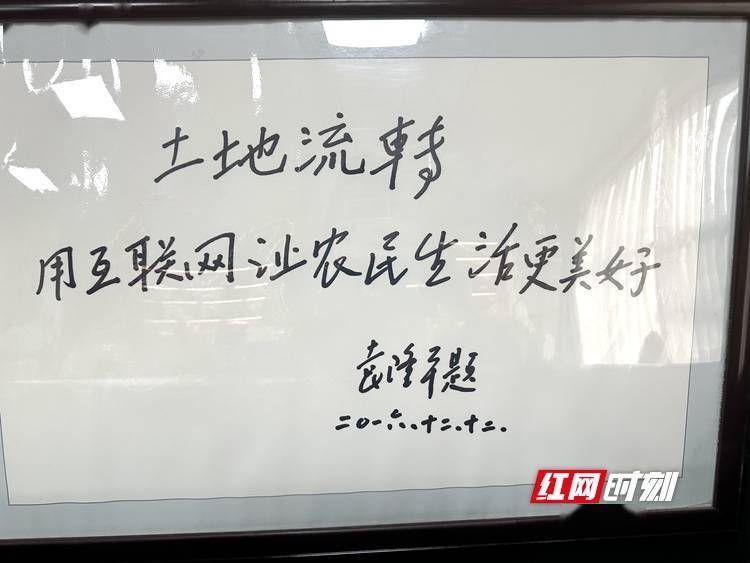 土地流轉
用互联网让农民生活更美好
袁隆平题
二〇一六.十二.十二.
红网时刻